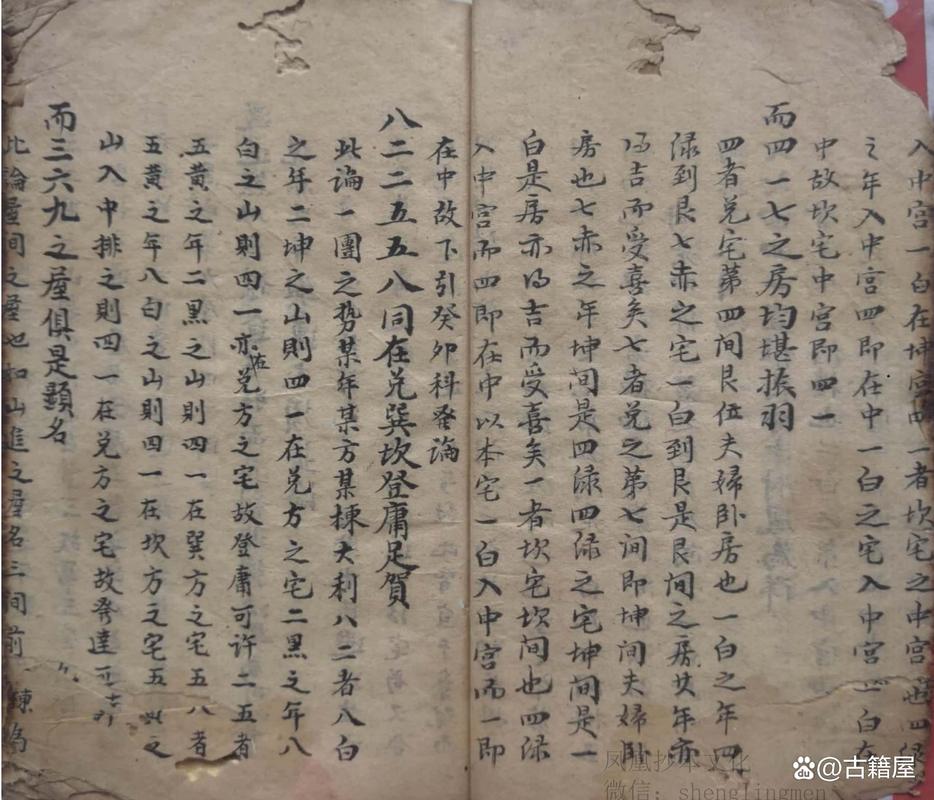 入中宫一白在坤宫四一者坎宅之中宫也四绿
之年入中宫四即在中一白之宅入中宫一白在
中故坎宅中宫即四一
而四一七之房均堪振羽
四者兑宅苐四间艮位夫婦卧房也一白之年四
绿到艮七赤之宅一白到艮是艮间之房其年亦
得吉而受喜矣七者兑之苐七间即坤间夫婦卧
房也七赤之年坤间是四绿四绿之宅坤间是一
白是房亦得吉而受喜矣一者坎宅坎间也四绿
入中宫而四即在中以本宅一白入中宫而一即
在中故下引癸卯科發論
八二二五五八同在兑巽坎登庸足賀
此論一團之势某年某方某棟大利八二者八白
之年二坤之山則四一在兑方之宅二黑之年八
白之山則四一亦在兑方之宅故登庸可许二五者
五黄之年二黑之山則四一在巽方之宅五八者
五黄之年八白之山則四一在坎方之宅五黄之
山入中排之則四一在兑方之宅故發達可
而三六九之屋俱是顯名
此論屋间之屋也如山進之屋名三间前棟為
凤凰抄本文化
微信：shenglingmen
@古籍屋